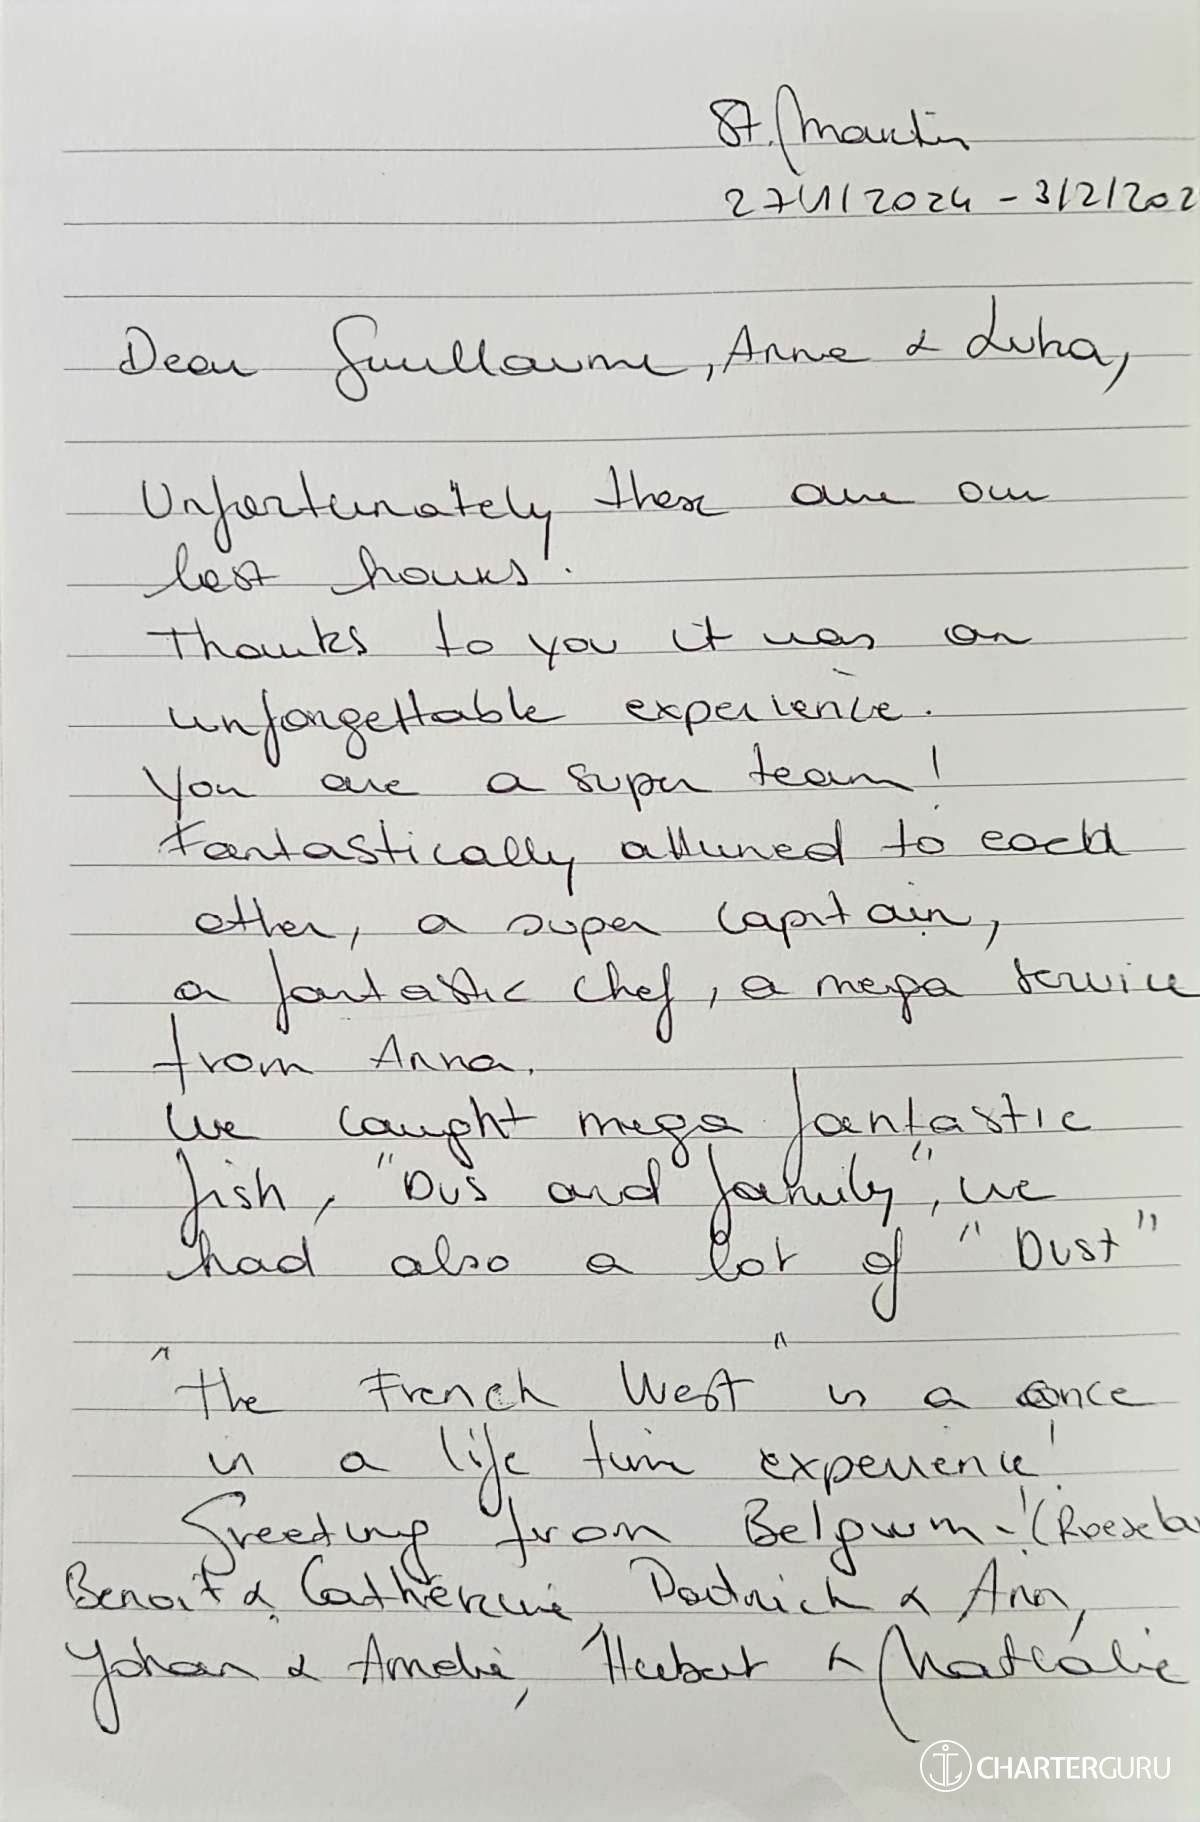 St. Martin
27/1/2024 - 3/2/202
Dear Guillaume, Anne & Luka,
Unfortunately these are our
last hours.
Thanks to you it was an
unforgettable experience.
You are a super team!
Fantastically attuned to each
other, a super captain,
a fantastic chef, a mega service
from Anna.
We caught mega fantastic
fish, "Dus and family", we
had also a lot of "Dust"
"The French West" is a once
in a life time experience!
Greeting from Belgium! (Roesela
Benoit & Catherine, Patrick & Ann,
Yohan & Amelie, Hubert & Mathalie
CHARTERGURU